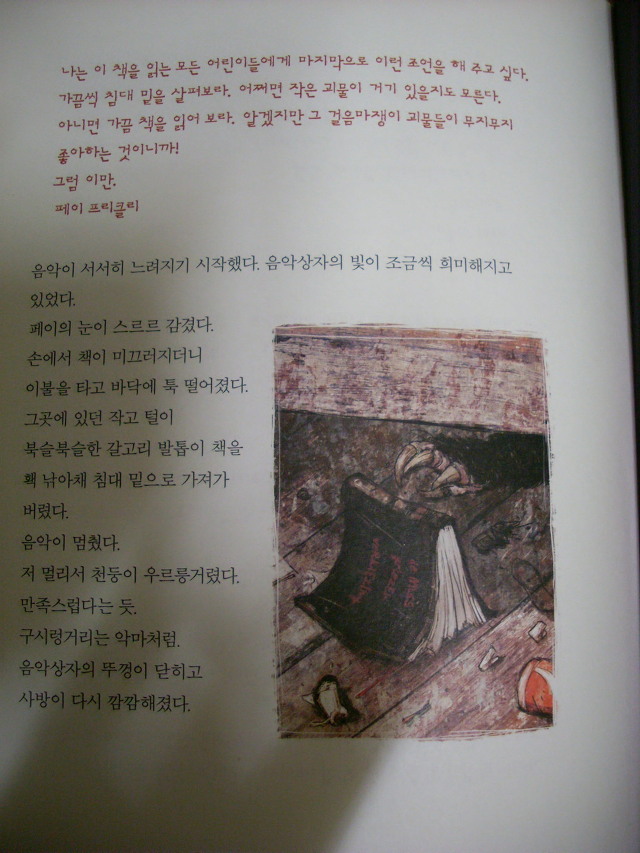 나는 이 책을 읽는 모든 어린이들에게 마지막으로 이런 조언을 해 주고 싶다.
가끔씩 침대 밑을 살펴보라. 어쩌면 작은 괴물이 거기 있을지도 모른다.
아니면 가끔 책을 읽어 보라. 알겠지만 그 걸음마쟁이 괴물들이 무지무지
좋아하는 것이니까!
그럼 이만.
페이 프리클리
음악이 서서히 느려지기 시작했다. 음악상자의 빛이 조금씩 희미해지고
있었다.
페이의 눈이 스르르 감겼다.
손에서 책이 미끄러지더니
이불을 타고 바닥에 툭 떨어졌다.
그곳에 있던 작고 털이
북슬북슬한 갈고리 발톱이 책을
홱 낚아채 침대 밑으로 가져가
버렸다.
음악이 멈췄다.
저 멀리서 천둥이 우르릉거렸다.
만족스럽다는 듯.
구시렁거리는 악마처럼.
음악상자의 뚜껑이 닫히고
사방이 다시 깜깜해졌다.